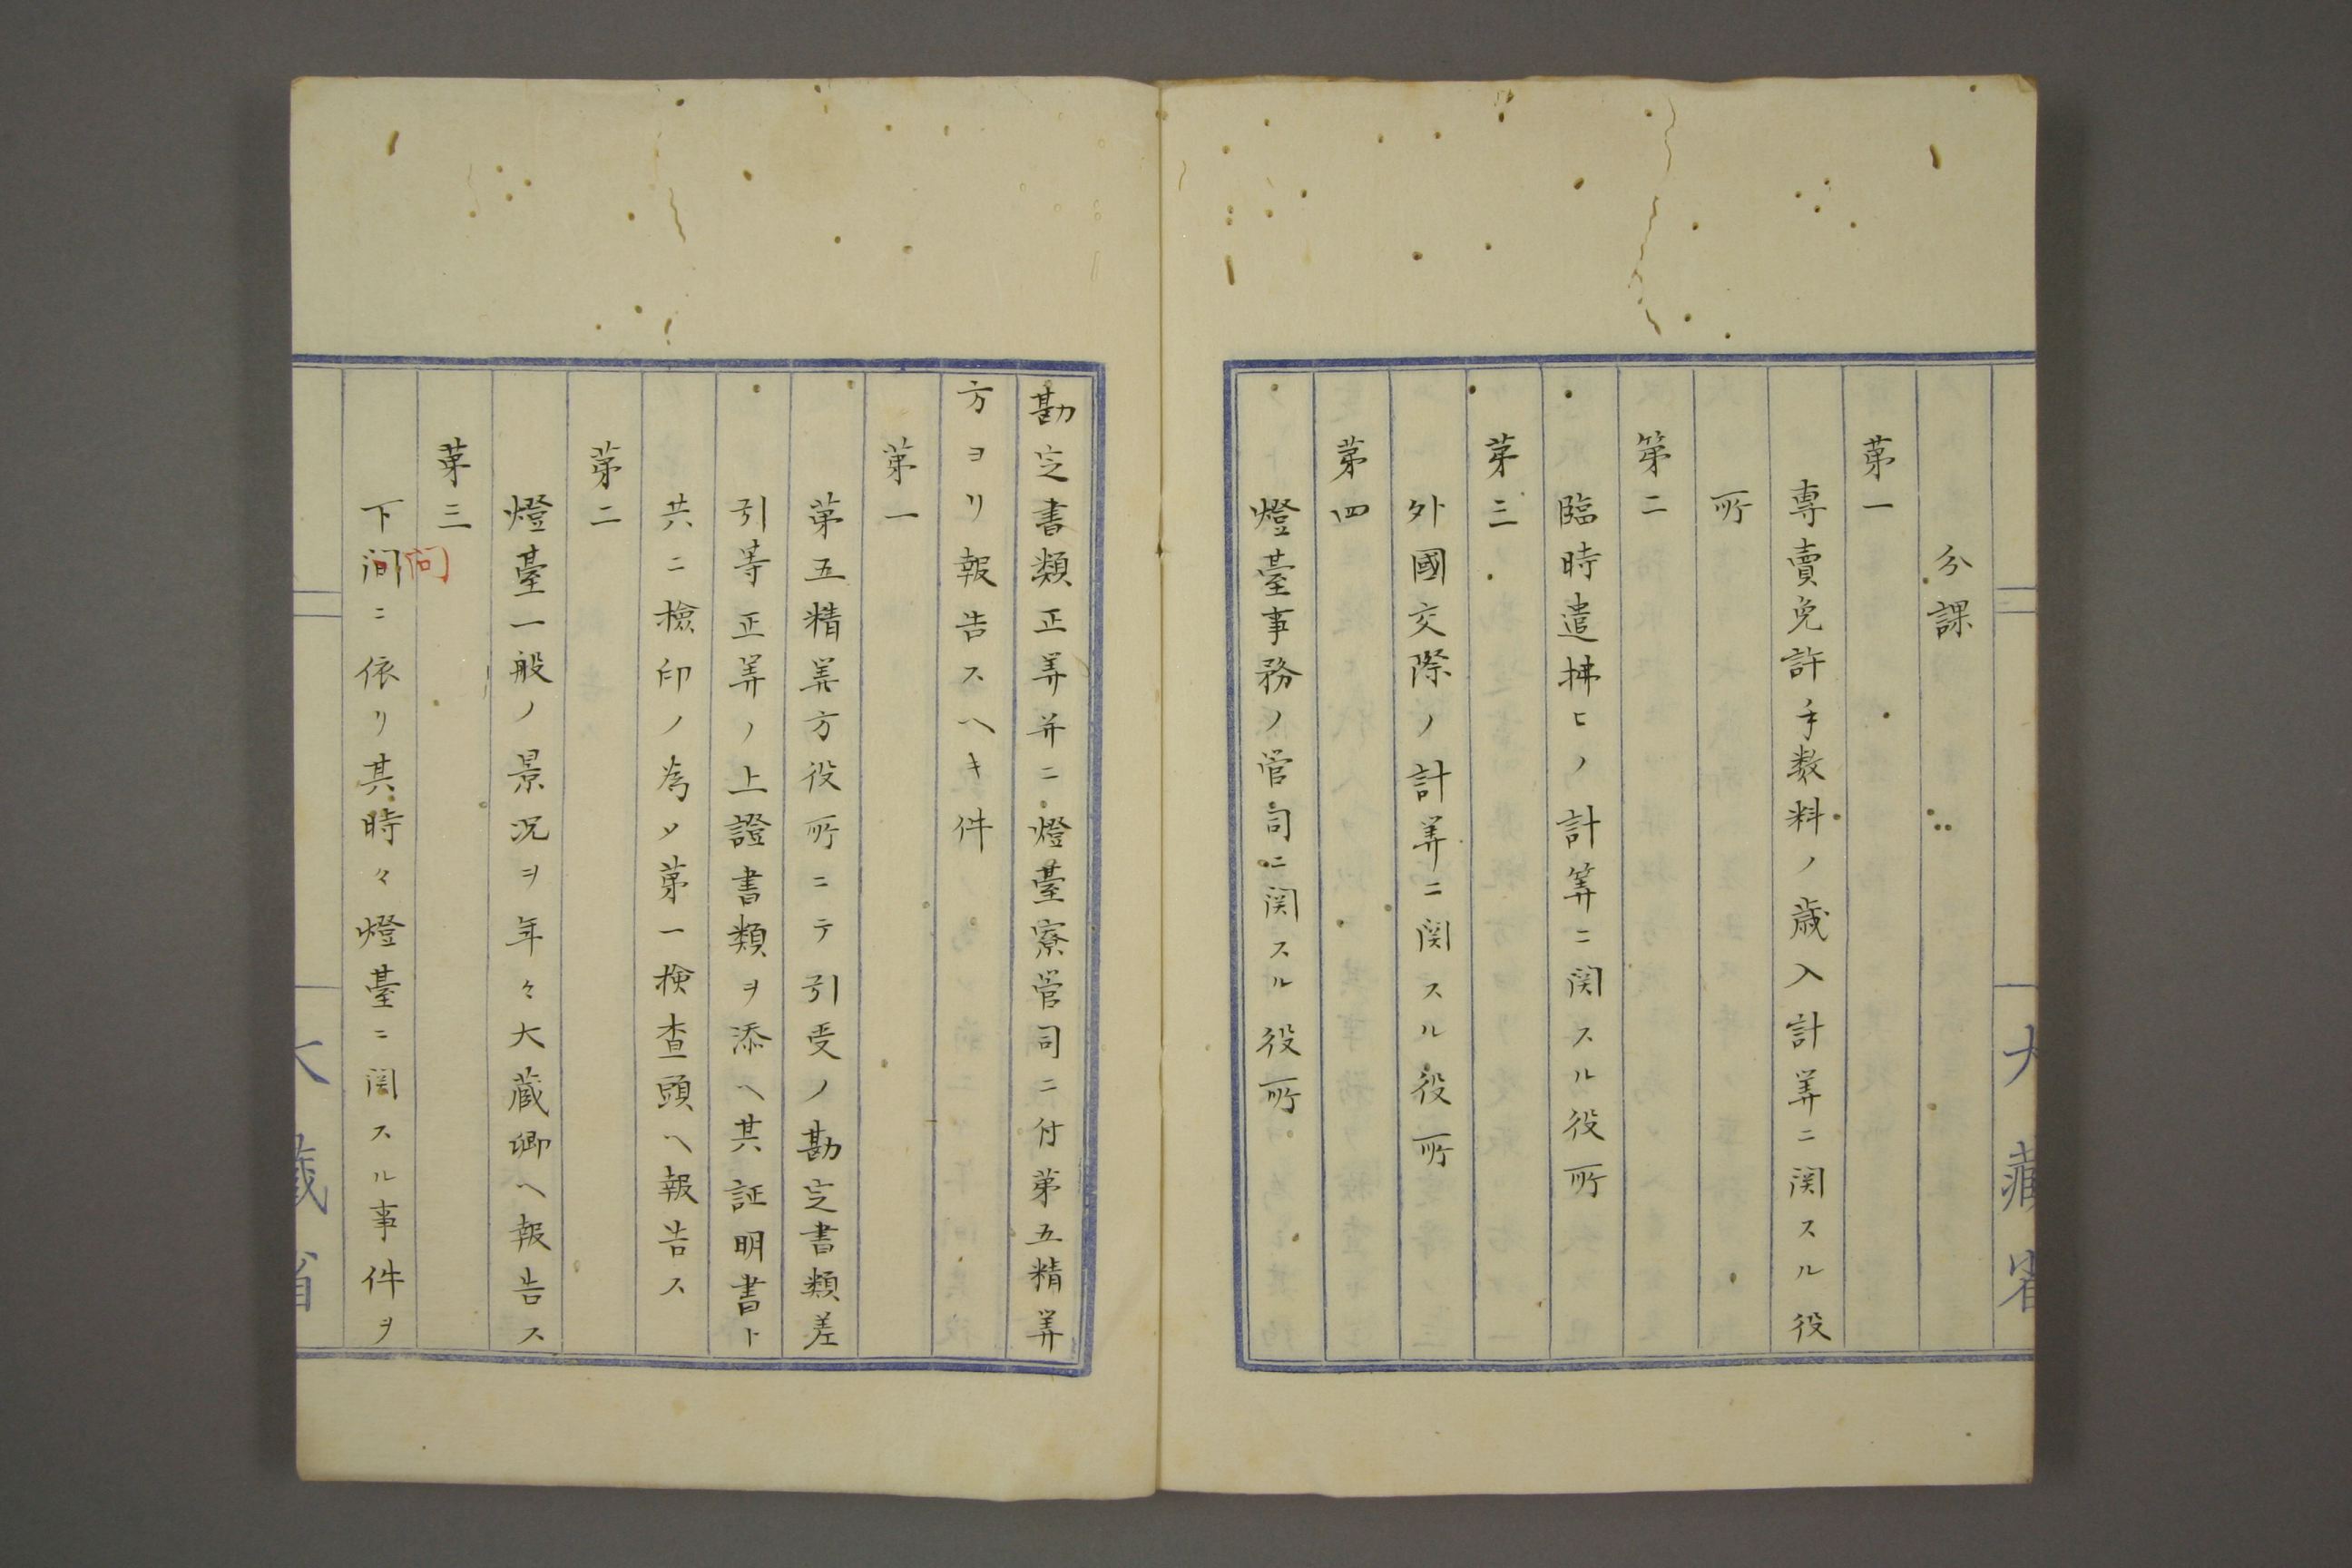 大藏省
分課
第一
専賣免許手数料ノ歳入計筭ニ関スル役
所
第二
臨時遣拂ヒノ計筭ニ関スル役所
第三
外國交際ノ計筭ニ関スル役所
第四
燈臺事務ノ管司ニ関スル役所
勘定書類正筭并ニ燈臺寮管司ニ付第五精筭
方ヨリ報告スヘキ件
第一
第五精筭方役所ニテ引受ノ勘定書類差
引等正筭ノ上證書類ヲ添ヘ其証明書ト
共ニ檢印ノ為メ第一検査頭ヘ報告ス
第二
燈臺一般ノ景况ヲ年々大蔵卿ヘ報告ス
第三
問
下間ニ依リ其時々燈臺ニ関スル事件ヲ
大藏省